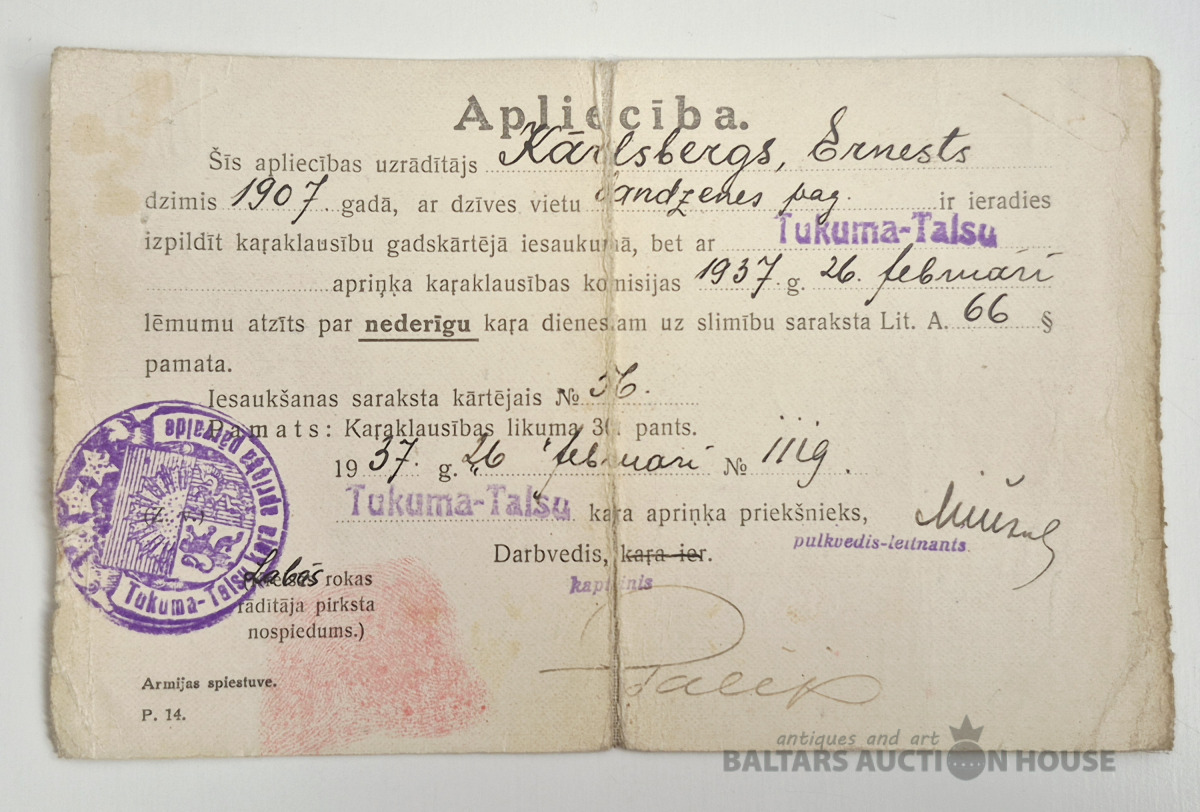 Apliecība.
Šīs apliecības uzrādītājs Kārlsbergs, Ernests
dzimis 1907. gadā, ar dzīves vietu Vandzenes pag. ir ieradies
izpildīt kaŗaklausību gadskārtējā iesaukumā, bet ar Tukuma-Talsu
apriņķa kaŗaklausības komisijas 1937. g. 26. februāri
lēmumu atzīts par nederīgu kaŗa dienestam uz slimību saraksta Lit. A. 66 §
pamata.
Iesaukšanas saraksta kārtējais № 36.
Pamats: Kaŗaklausības likuma 30. pants.
1937. g. „26 “ februāri №
Tukuma-Talsu kaŗa apriņķa priekšnieks,
pulkvedis-leitnants.
Darbvedis, kaŗa ier.
kapteinis
Tukuma-Talsu kaŗa apriņķa pārvalde
Labās rokas
rādītāja pirksta
nospiedums.)
Armijas spiestuve.
P. 14.
antiques and art
BALTARS AUCTION HOUSE